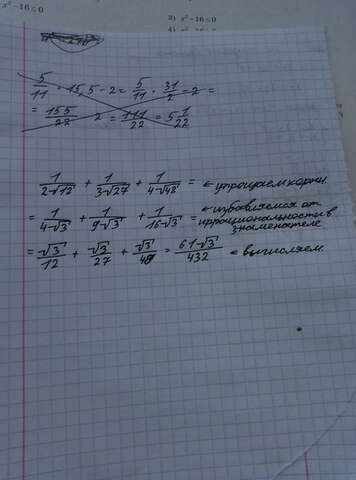 x² - 16 ≤ 0
3) x² - 16 ≤ 0
5/11 · 15,5 - 2 = 5/11 · 31/2 - 2 =
= 155/22 - 2 = 111/22 = 5 1/22
1/(2√12) + 1/(3√27) + 1/(4√48) = ← упрощаем корни.
= 1/(4√3) + 1/(9√3) + 1/(16√3) = ← избавляемся от иррациональности в знаменателе
= √3/12 + √3/27 + √3/48 = 61√3/432 ← вычисляем.